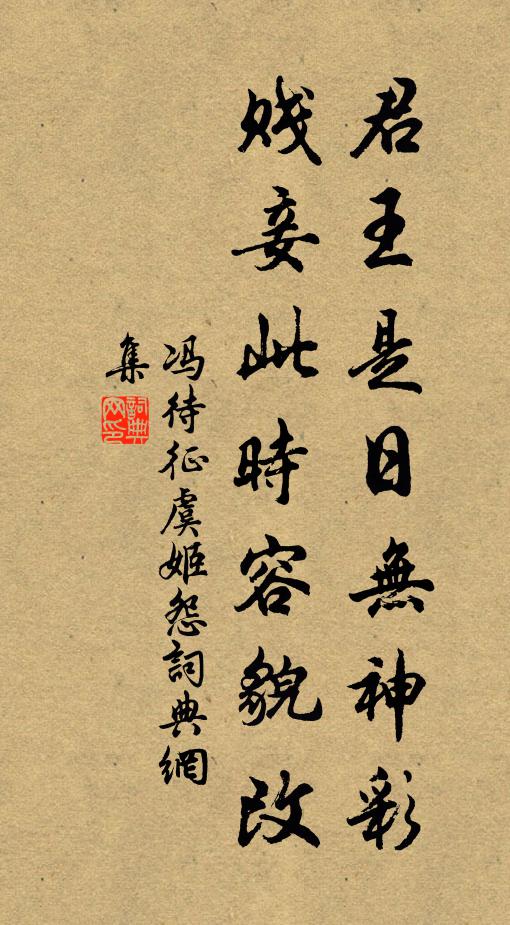 君王是日無神彩
賤妾此時容貌改
冯待征虞姬怨詞典網
集
詞典
网印